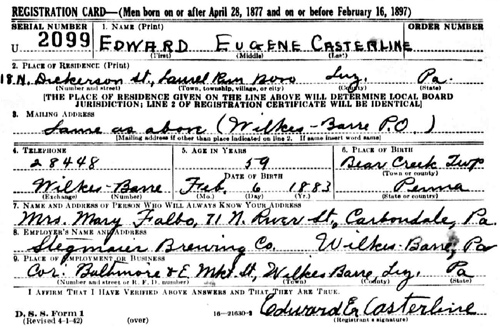 REGISTRATION CARD—(Men born on or after April 28, 1877 and on or before February 16, 1897)
SERIAL NUMBER 1. NAME (Print) ORDER NUMBER
U 2099 EDWARD EUGENE CASTERLINE
(First) (Middle) (Last)
2. PLACE OF RESIDENCE (Print)
18 N. Dickerson St, Laurel Run Boro Luz. Pa.
(Number and street) (Town, township, village, or city) (County) (State)
[THE PLACE OF RESIDENCE GIVEN ON THE LINE ABOVE WILL DETERMINE LOCAL BOARD
JURISDICTION; LINE 2 OF REGISTRATION CERTIFICATE WILL BE IDENTICAL]
3. MAILING ADDRESS
Same as abov (Wilkes-Barre P.O.)
[Mailing address if other than place indicated on line 2. If same insert word same]
4. TELEPHONE 5. AGE IN YEARS 6. PLACE OF BIRTH
28448 59 Bear Creek Twp
DATE OF BIRTH (Town or county)
Wilkes-Barre Feb. 6 1883 Penna
(Exchange) (Number) (Mo.) (Day) (Yr.) (State or country)
7. NAME AND ADDRESS OF PERSON WHO WILL ALWAYS KNOW YOUR ADDRESS
Mrs. Mary Falbo, 71 N. River St, Carbondale, Pa.
8. EMPLOYER'S NAME AND ADDRESS
Stegmaier Brewing Co. Wilkes-Barre, Pa
9. PLACE OF EMPLOYMENT OR BUSINESS
Cor. Baltimore & E. Mkt. St, Wilkes Barre, Luz. Pa
(Number and street or R. F. D. number) (Town) (County) (State)
I AFFIRM THAT I HAVE VERIFIED ABOVE ANSWERS AND THAT THEY ARE TRUE.
D. S. S. Form 1 Edward E. Casterline
(Revised 4-1-42) (over) 16—21630-2 (Registrant's signature)